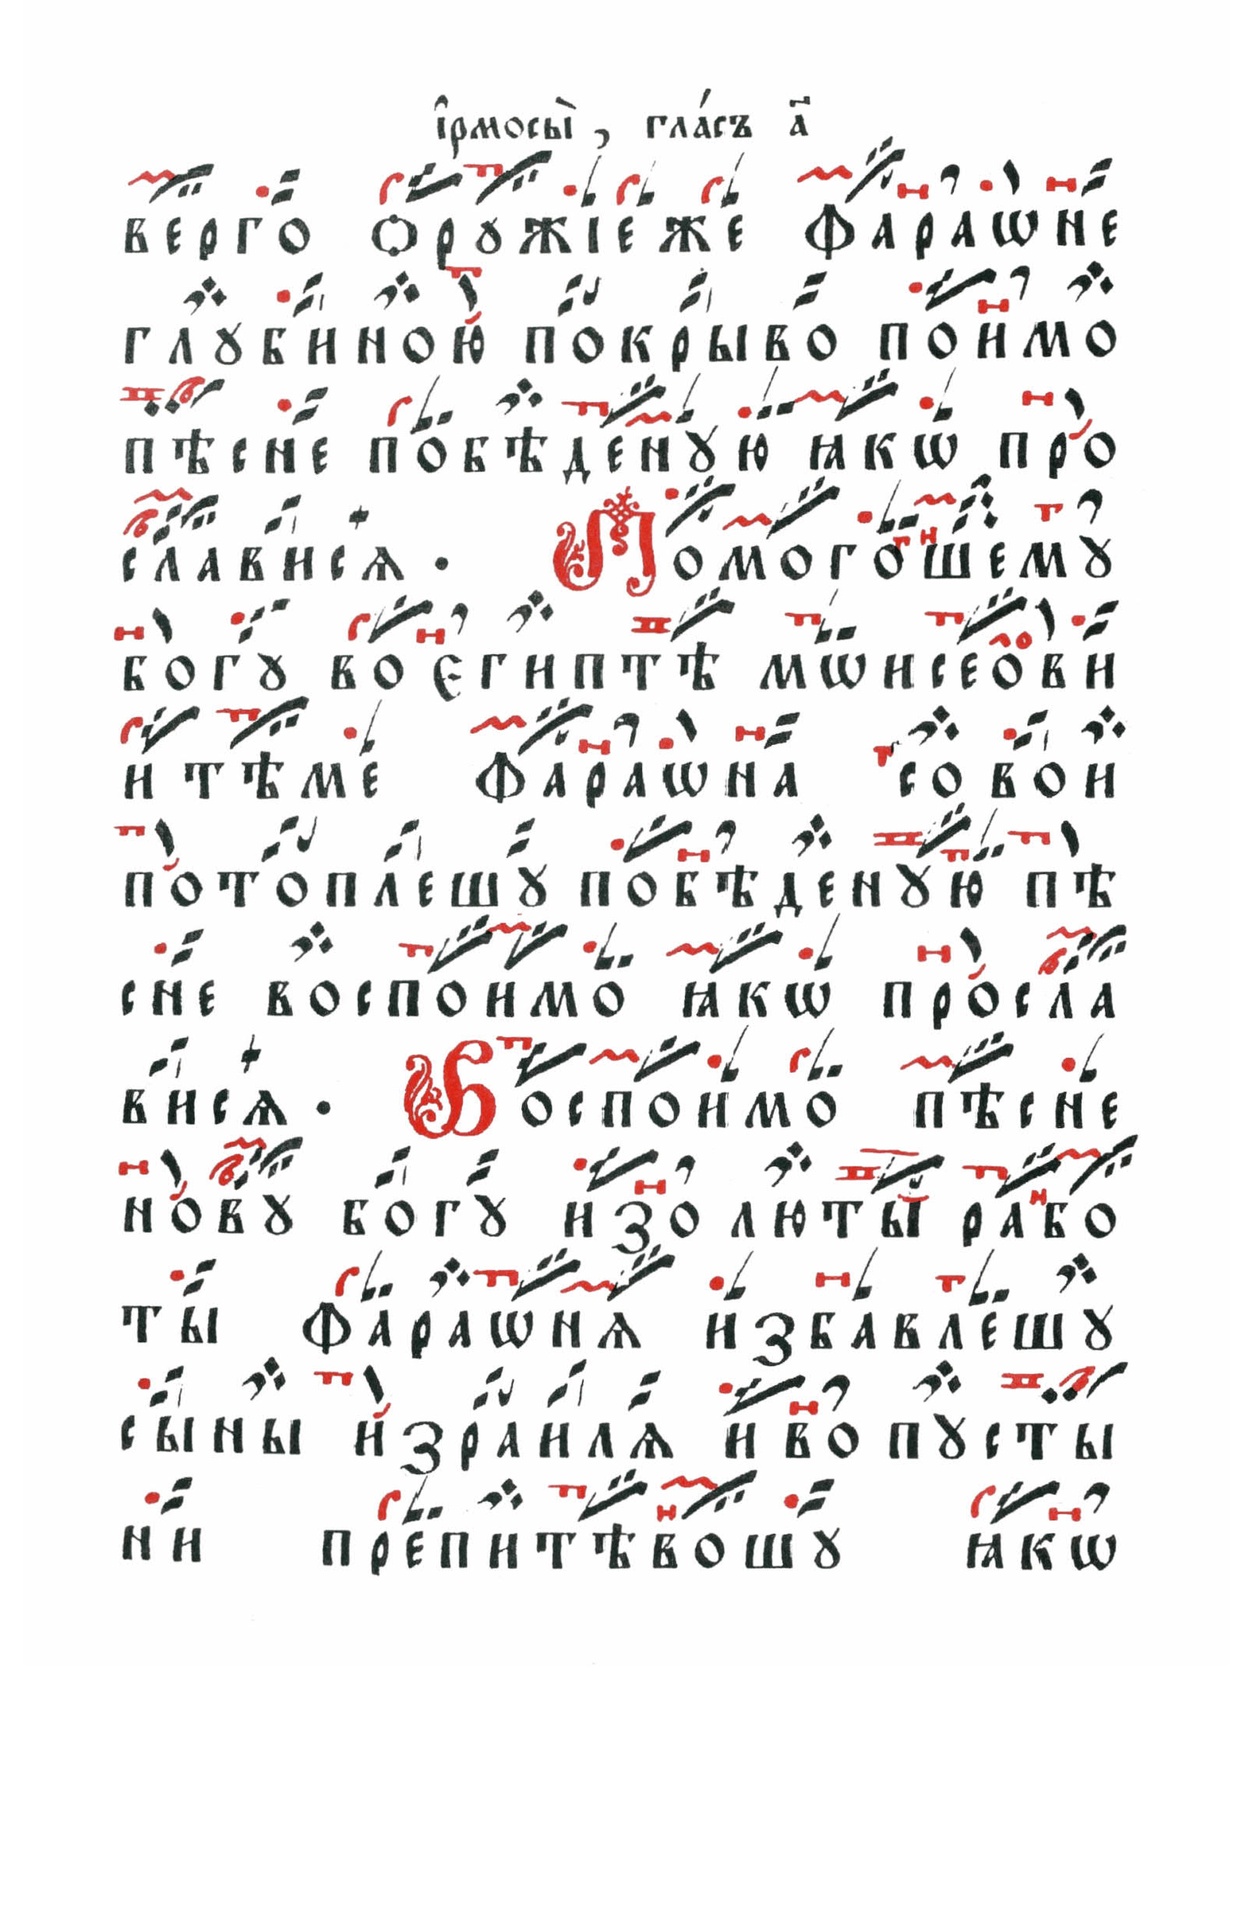 і҆рмосы̀, гла́съ а҃
верго ѻрꙋжіеже фараѡне
глꙋбиною покрыво поимо
пѣсне побѣденꙋю ꙗкѡ про
слависѧ. Помогошемꙋ
богꙋ во єгиптѣ мѡисеови
и тѣме фараѡна совои
потоплешꙋ побѣденꙋю пѣ
сне воспоимо ꙗкѡ просла
висѧ. Воспоимо пѣсне
новꙋ богꙋ изо люты рабо
ты фараѡнѧ избавлешꙋ
сыны израилѧ и во пꙋсты
ни препитѣвошꙋ ꙗкѡ